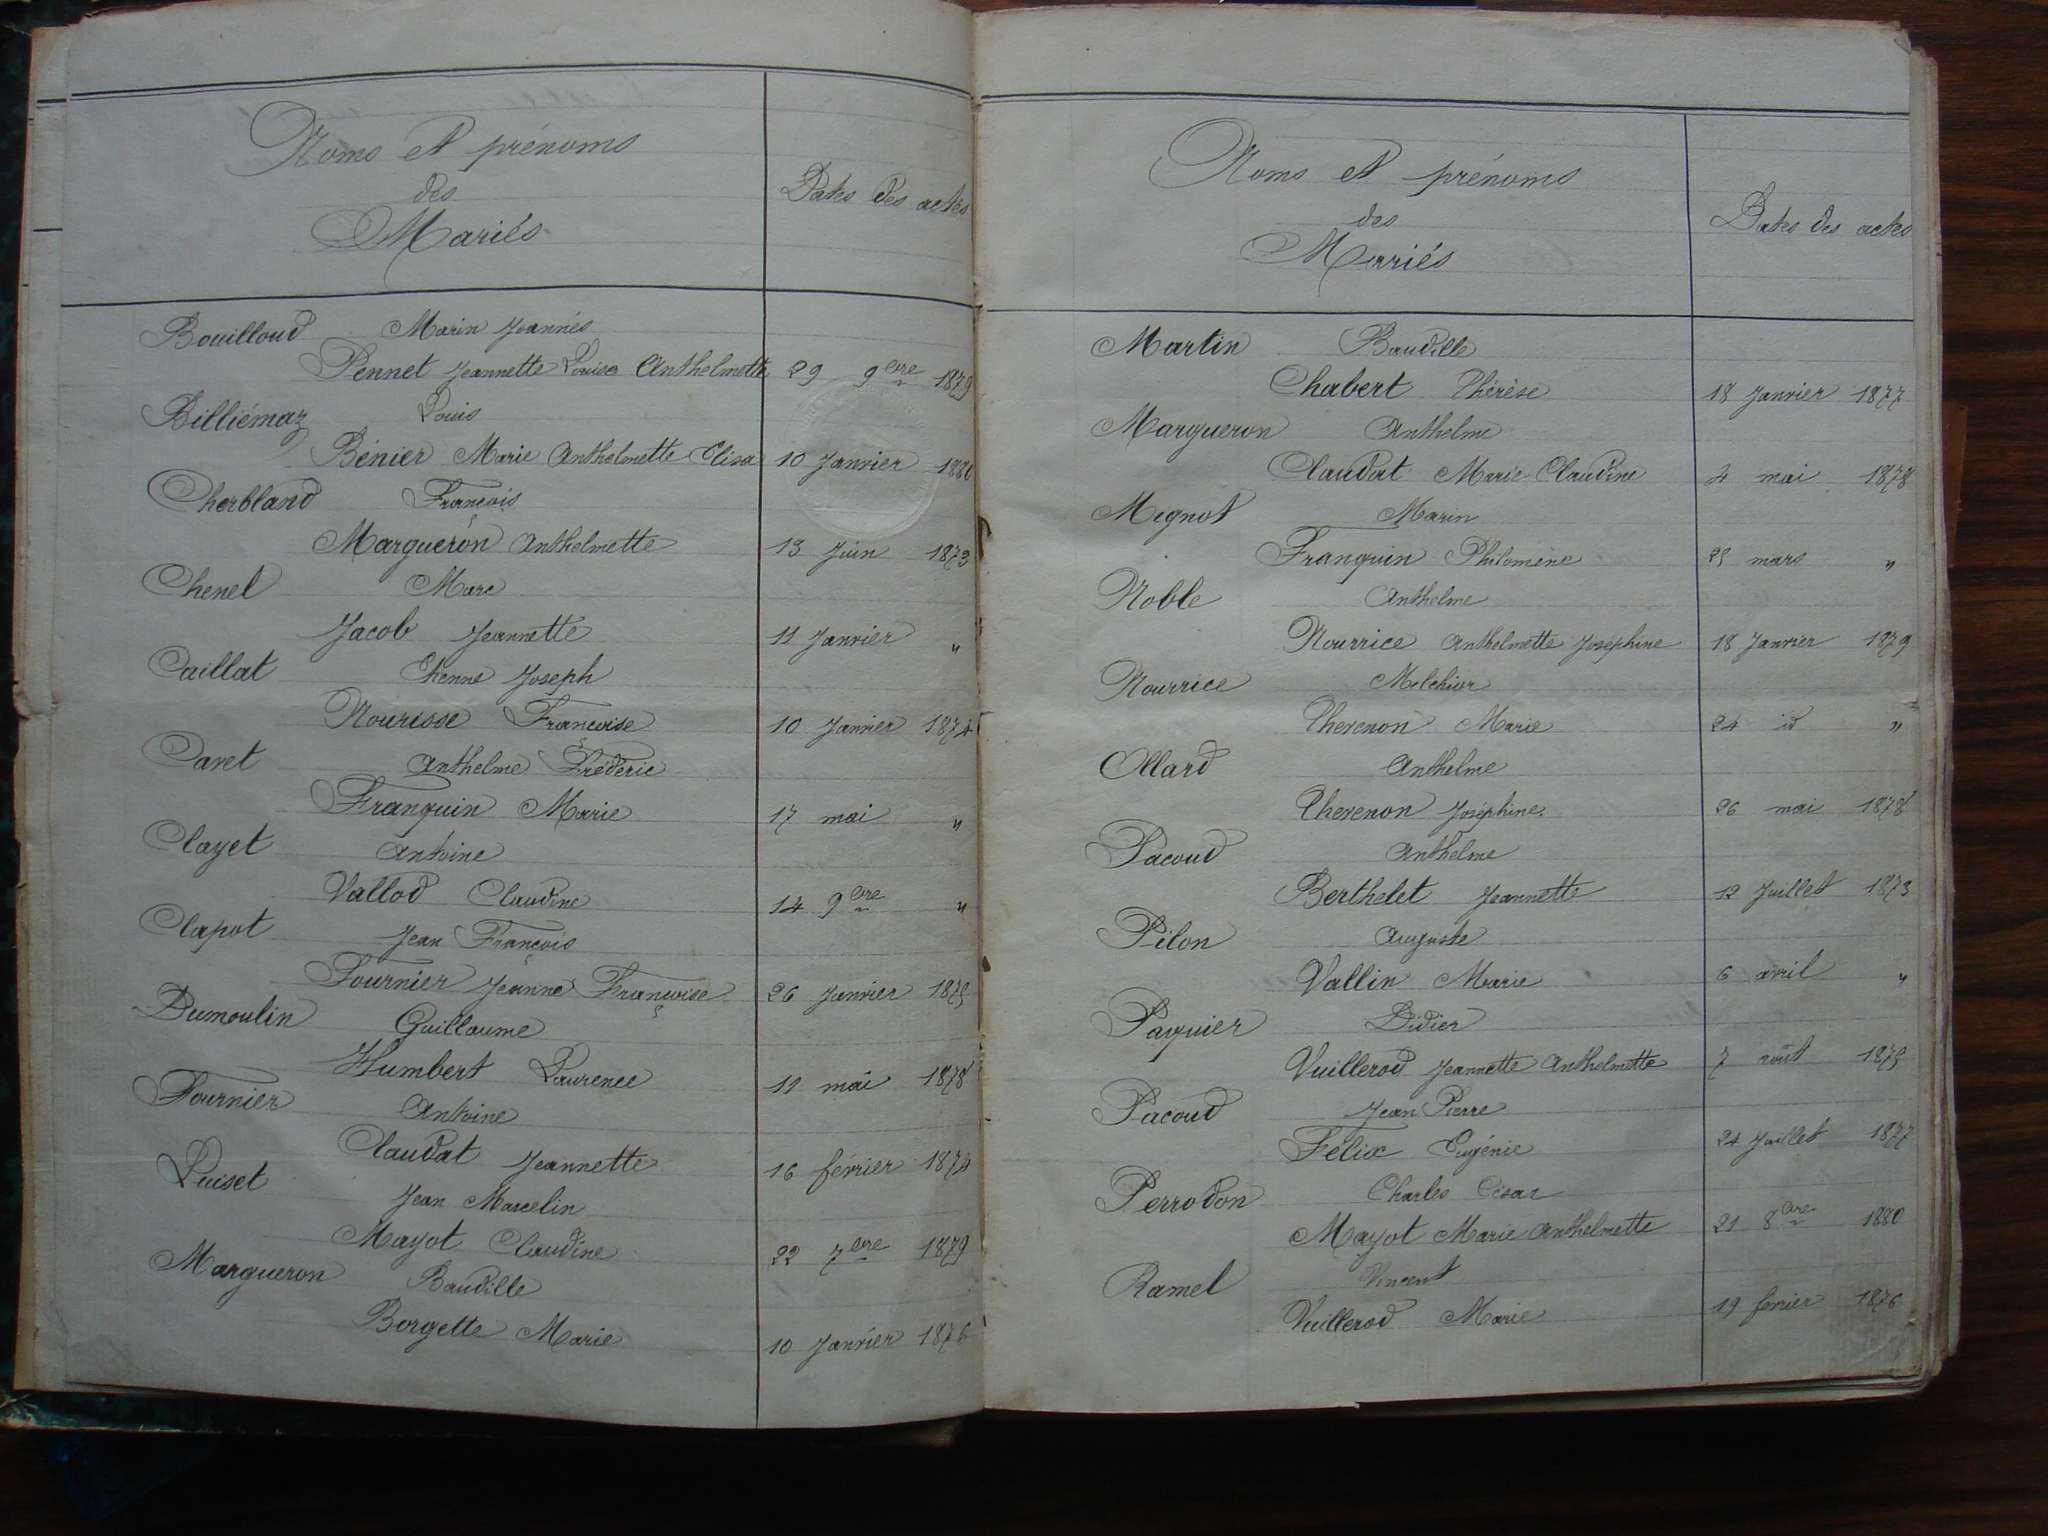 Noms et prénoms
des
Mariés
Dates des actes
Bouilloud Marin Joannès
Pennet Jeannette Louise Anthelmette 29 9bre 1879
Billiémaz Louis
Bénier Marie Anthelmette Elisa 10 Janvier 1880
Cherbland François
Margueron Anthelmette 13 Juin 1873
Chenel Marc
Jacob Jeannette 11 Janvier "
Caillat Joseph
Nourisse Françoise 10 Janvier 1874
Caret Anthelme Frédéric
Franquin Marie 17 mai "
Clayet Antoine
Vallod Claudine 14 9bre "
Clapot Jean François
Fournier Jeanne Françoise 26 Janvier 1875
Dumoulin Guillaume
Humbert Laurence 11 mai 1878
Fournier Antoine
Claudat Jeannette 16 février 1874
Luiset Jean Marcelin
Mayot Claudine 22 7bre 1879
Margueron Baudille
Borgette Marie 10 Janvier 1876
Noms et prénoms
des
Mariés
Dates des actes
Martin Baudille
Chabert Thérèse 18 Janvier 1877
Margueron Anthelme
Claudat Marie Claudine 4 mai 1878
Mignot Marin
Franquin Philomène 25 mars "
Noble Anthelme
Nourrice Anthelmette Joséphine 18 Janvier 1879
Nourrice Melchior
Thevenon Marie 24 id "
Ollard Anthelme
Thevenon Joséphine 26 mai 1878
Pacoud Anthelme
Berthelet Jeannette 12 Juillet 1873
Pilon Auguste
Vallin Marie 6 avril "
Paquier Didier
Vuillerod Jeannette Anthelmette 7 août 1875
Pacoud Jean Pierre
Félix Eugénie 24 Juillet 1877
Perrodon Charles César
Mayot Marie Anthelmette 21 8bre 1880
Ramel Vincent
Vuillerod Marie 19 fevrier 1876